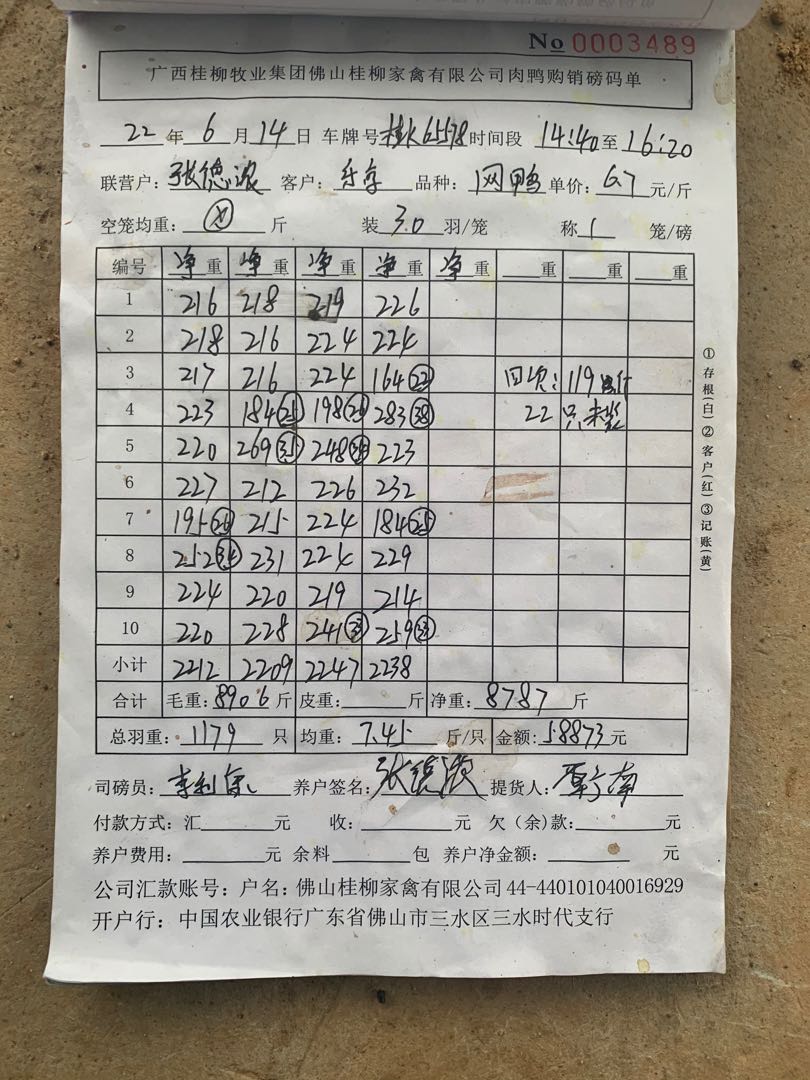 No 0003489
广西桂柳牧业集团佛山桂柳家禽有限公司肉鸭购销磅码单
22 年 6 月 14 日 车牌号 65578 时间段 14:40 至 16:20
联营户: 张德 客户: 品种: 网鸭 单价: 6.7 元/斤
空笼均重: 斤 装 30 羽/笼 称 1 笼/磅
编号 净重 净重 净重 净重 净重 重 重 重
1 216 218 219 226
2 218 216 224 224
3 217 216 224 164 22 回 119
4 223 184 25 198 283 38 22 只未装
5 220 269 35 248 223
6 227 212 226 232
7 195 26 215 224 184 25
8 252 34 231 224 229
9 224 220 219 214
10 220 228 241 259
小计 2212 2209 2247 2238
合计 毛重: 8906 斤 皮重: 斤 净重: 8787 斤
总羽重: 1179 只 均重: 7.45 斤/只 金额: 58873 元
司磅员: 李利 养户签名: 张德 提货人: 南
付款方式: 汇 元 收: 元 欠(余)款: 元
养户费用: 元 余料 包 养户净金额: 元
公司汇款账号: 户名: 佛山桂柳家禽有限公司 44-440101040016929
开户行: 中国农业银行广东省佛山市三水区三水时代支行
①存根(白)②客户(红)③记账(黄)